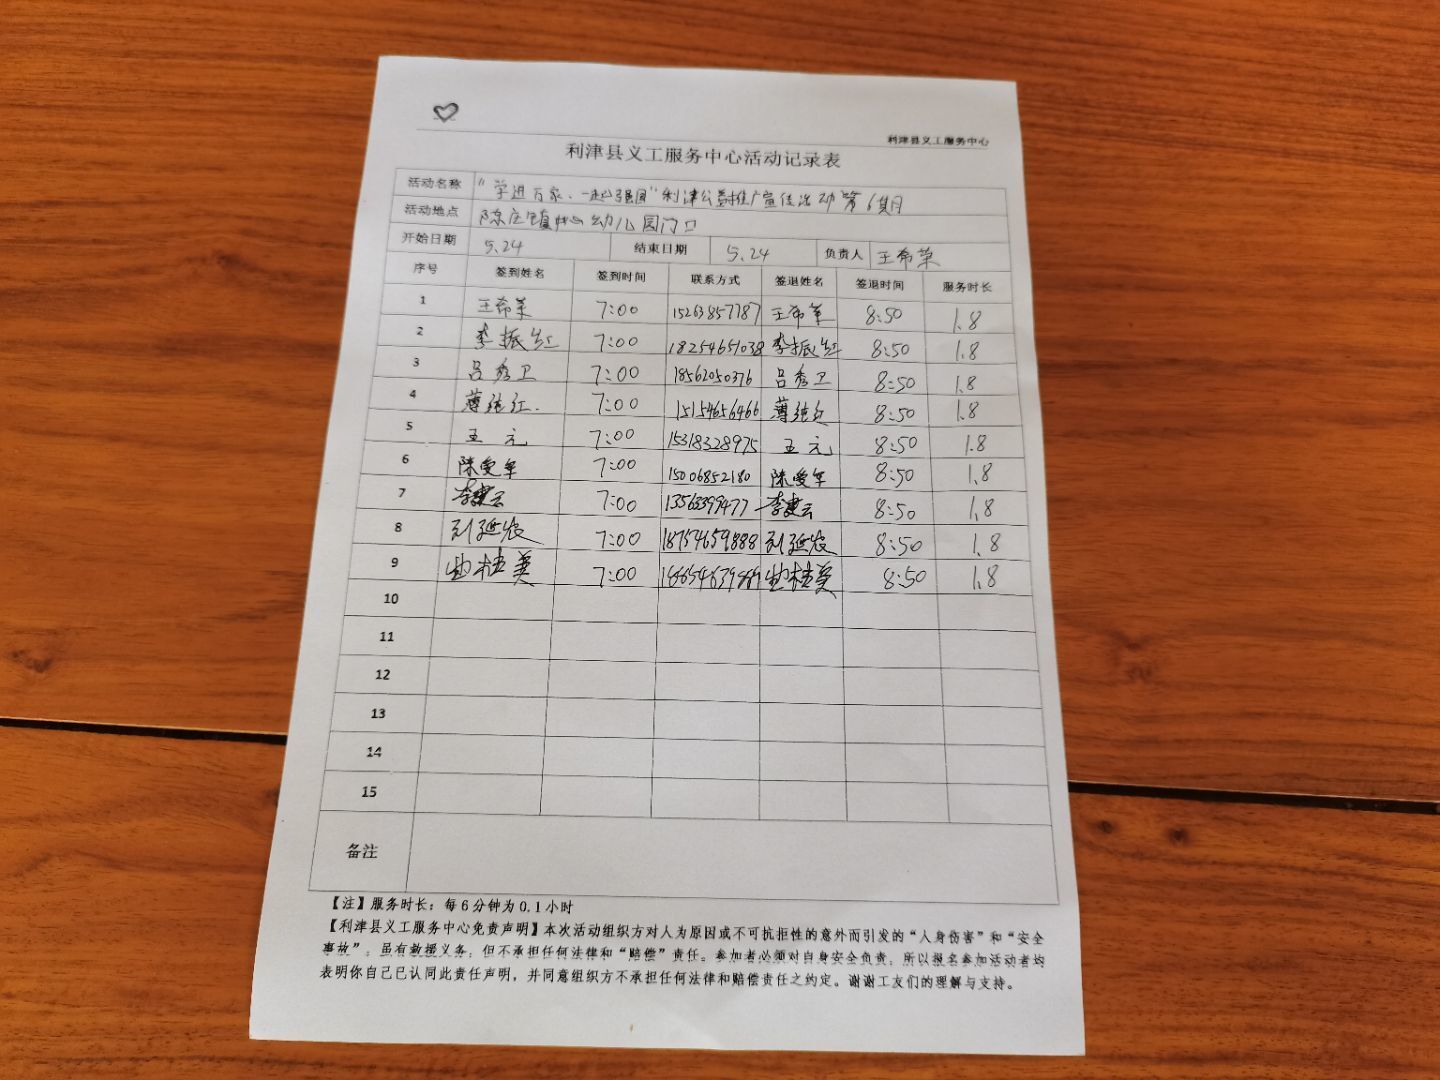 利津县义工服务中心
利津县义工服务中心活动记录表
活动名称 "学进万家、一起强国"利津公益推广宣传活动第6期
活动地点 陈庄镇中心幼儿园门口
开始日期 5.24 结束日期 5.24 负责人 王希荣
序号 签到姓名 签到时间 联系方式 签退姓名 签退时间 服务时长
1 王希荣 7:00 15263857787 王希荣 8:50 1.8
2 李振红 7:00 18254651038 李振红 8:50 1.8
3 吕秀卫 7:00 18562050376 吕秀卫 8:50 1.8
4 薄纯红 7:00 15154656466 薄纯红 8:50 1.8
5 王元 7:00 15318328975 王元 8:50 1.8
6 陈爱军 7:00 15006852180 陈爱军 8:50 1.8
7 李建云 7:00 13563399477 李建云 8:50 1.8
8 刘延农 7:00 18754659888 刘延农 8:50 1.8
9 桂英 7:00 桂英 8:50 1.8
10
11
12
13
14
15
备注
【注】服务时长：每6分钟为0.1小时
【利津县义工服务中心免责声明】本次活动组织方对人为原因或不可抗拒性的意外而引发的“人身伤害”和“安全
事故”，虽有救援义务，但不承担任何法律和“赔偿”责任。参加者必须对自身安全负责，所以报名参加活动者均
表明你自己已认同此责任声明，并同意组织方不承担任何法律和赔偿责任之约定。谢谢工友们的理解与支持。